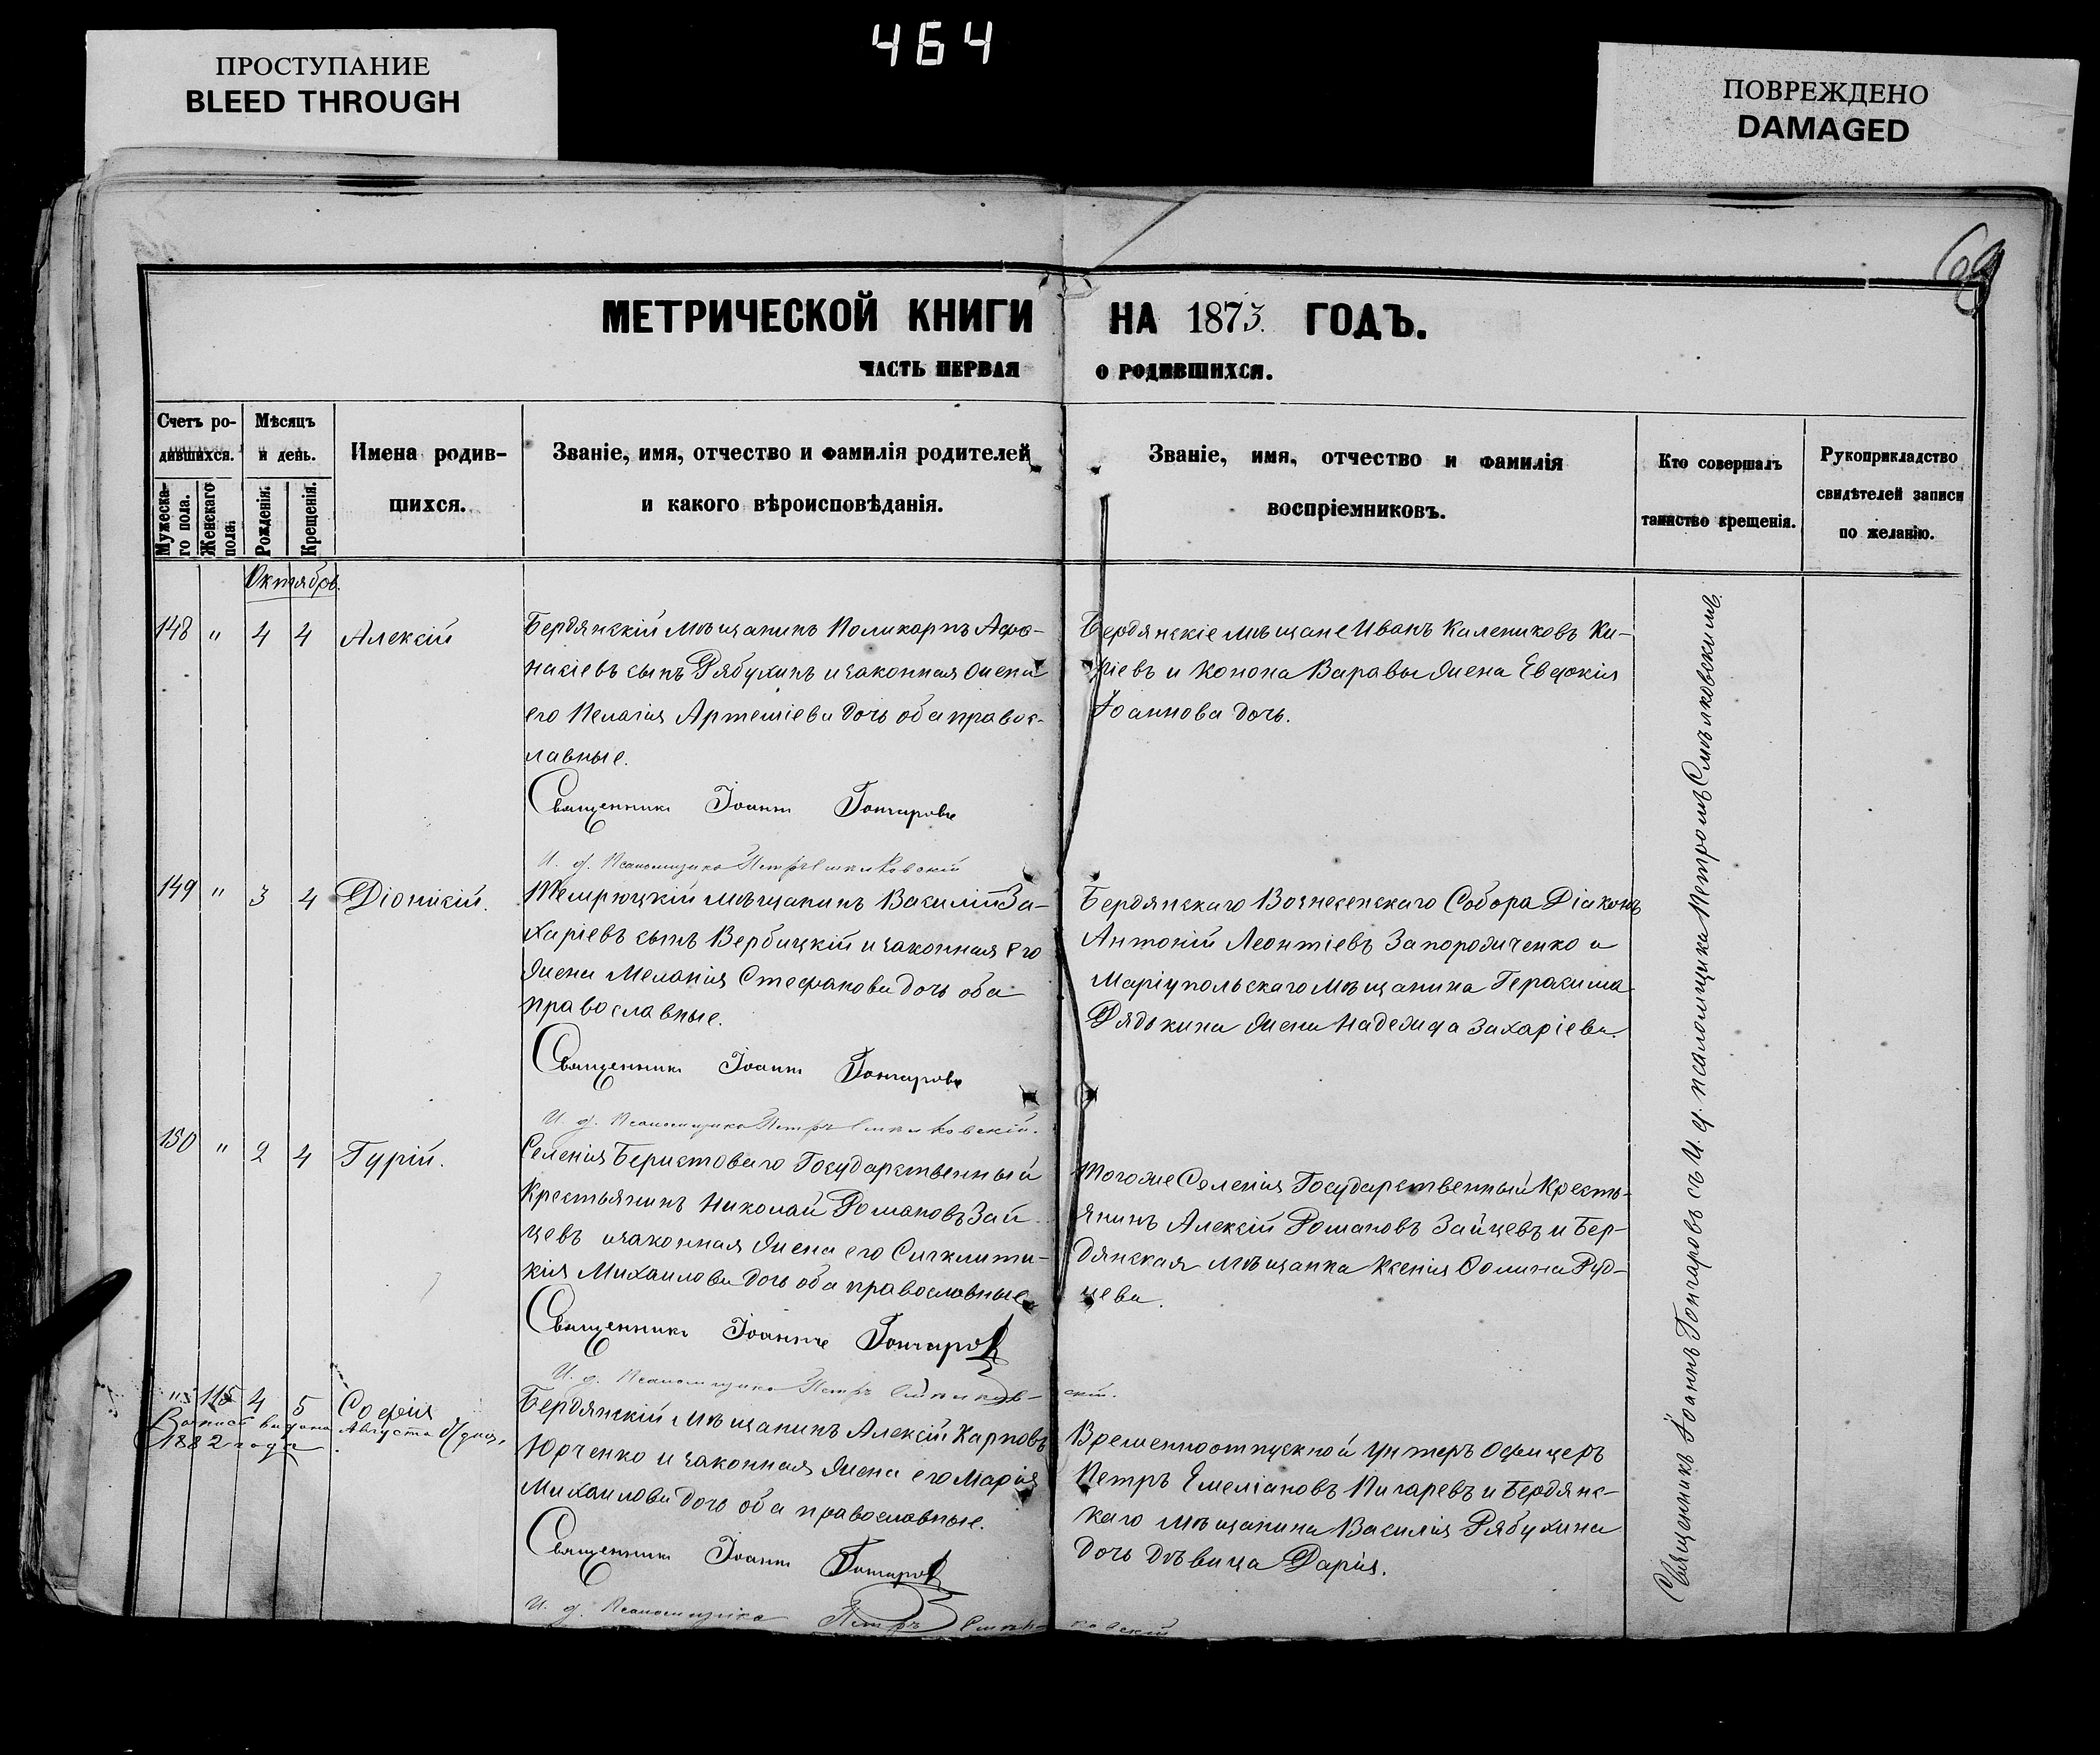 464
ПРОСТУПАНИЕ
BLEED THROUGH
ПОВРЕЖДЕНО
DAMAGED
69
МЕТРИЧЕСКОЙ КНИГИ НА 1873. ГОДЪ.
ЧАСТЬ ПЕРВАЯ О РОДИВШИХСЯ.
Счетъ ро-
дившихся.
Мужеска-
го пола.
Женскаго
пола.
Мѣсяцъ
и день.
Рожденія.
Крещенія.
Имена родив-
шихся.
Званіе, имя, отчество и фамилія родителей
и какого вѣроисповѣданія.
Званіе, имя, отчество и фамилія
воспріемниковъ.
Кто совершалъ
таинство крещенія.
Рукоприкладство
свидѣтелей записи
по желанію.
Октябрь.
148 " 4 4 Алексій
Бердянскій мѣщанинъ Поликарпъ Афа-
насіевъ сынъ Рябухинъ и законная жена
его Пелагія Артеміева дочь оба правос-
лавные.
Священникъ Іоаннъ Гончаровъ
И. д. Псаломщика Петръ Смѣлковскій
Бердянскіе мѣщане Иванъ Калениковъ Ки-
ріевъ и Конона Варавы жена Евдокія
Іоаннова дочь.
149 " 3 4 Діонисій.
Темрюцкій мѣщанинъ Василій За-
харіевъ сынъ Вербицкій и законная его
жена Меланія Стефанова дочь оба
православные.
Священникъ Іоаннъ Гончаровъ
И. д. Псаломщика Петръ Смѣлковскій.
Бердянскаго Вознесенскаго Собора Діаконъ
Антоній Леонтіевъ Запорожченко и
Маріупольскаго мѣщанина Герасима
Рядькина жена Надежда Захаріева.
150 " 2 4 Гурій.
Селенія Берестоваго Государственный
Крестьянинъ Николай Романовъ Зай-
цевъ и законная жена его Сигклити-
кія Михаилова дочь оба православные.
Священникъ Іоаннъ Гончаровъ
И. д. Псаломщика Петръ Смѣлков-
скій.
Тогоже Селенія Государственный Кресть-
янинъ Алексій Романовъ Зайцевъ и Бер-
дянская мѣщанка Ксенія Ѳомина Руд-
цева.
" 115 4 5 Софія
выдана Августа
1882 года
Бердянскій мѣщанинъ Алексій Карповъ
Юрченко и законная жена его Марія
Михаилова дочь оба православные.
Священникъ Іоаннъ Гончаровъ
И. д. Псаломщика Петръ Смѣлковскій
Временноотпускной Унтеръ Офицеръ
Петръ Емеліановъ Пигаревъ и Бердянс-
каго мѣщанина Василія Рябухина
дочь дѣвица Дарія.
Священникъ Іоаннъ Гончаровъ съ И. д. псаломщика Петромъ Смѣлковскимъ.